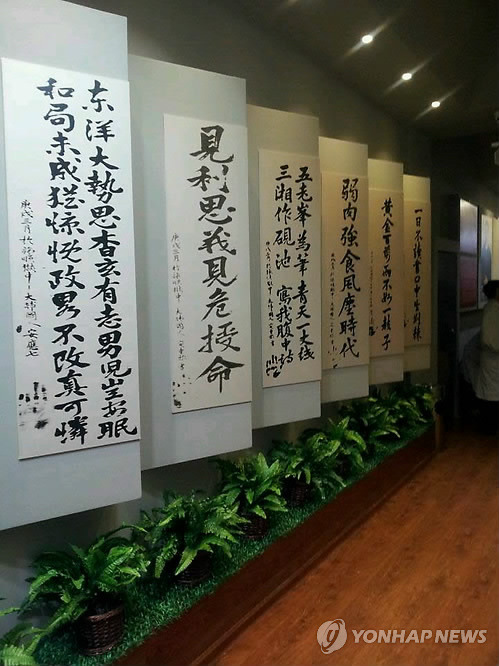 东洋大勢思杳玄有志男児豈安眠
和局未成猶慷慨政畧不改真可憐
庚戌三月於旅順獄中 大韓國人安重根
見利思義見危授命
庚戌三月於旅順獄中 大韓國人安重根書
五老峯為筆 青天一丈紙
三湘作硯池 寫我腹中詩
弱肉強食風塵時代
黃金百萬而不如一教子
一日不讀書口中生荊棘
YONHAP NEWS